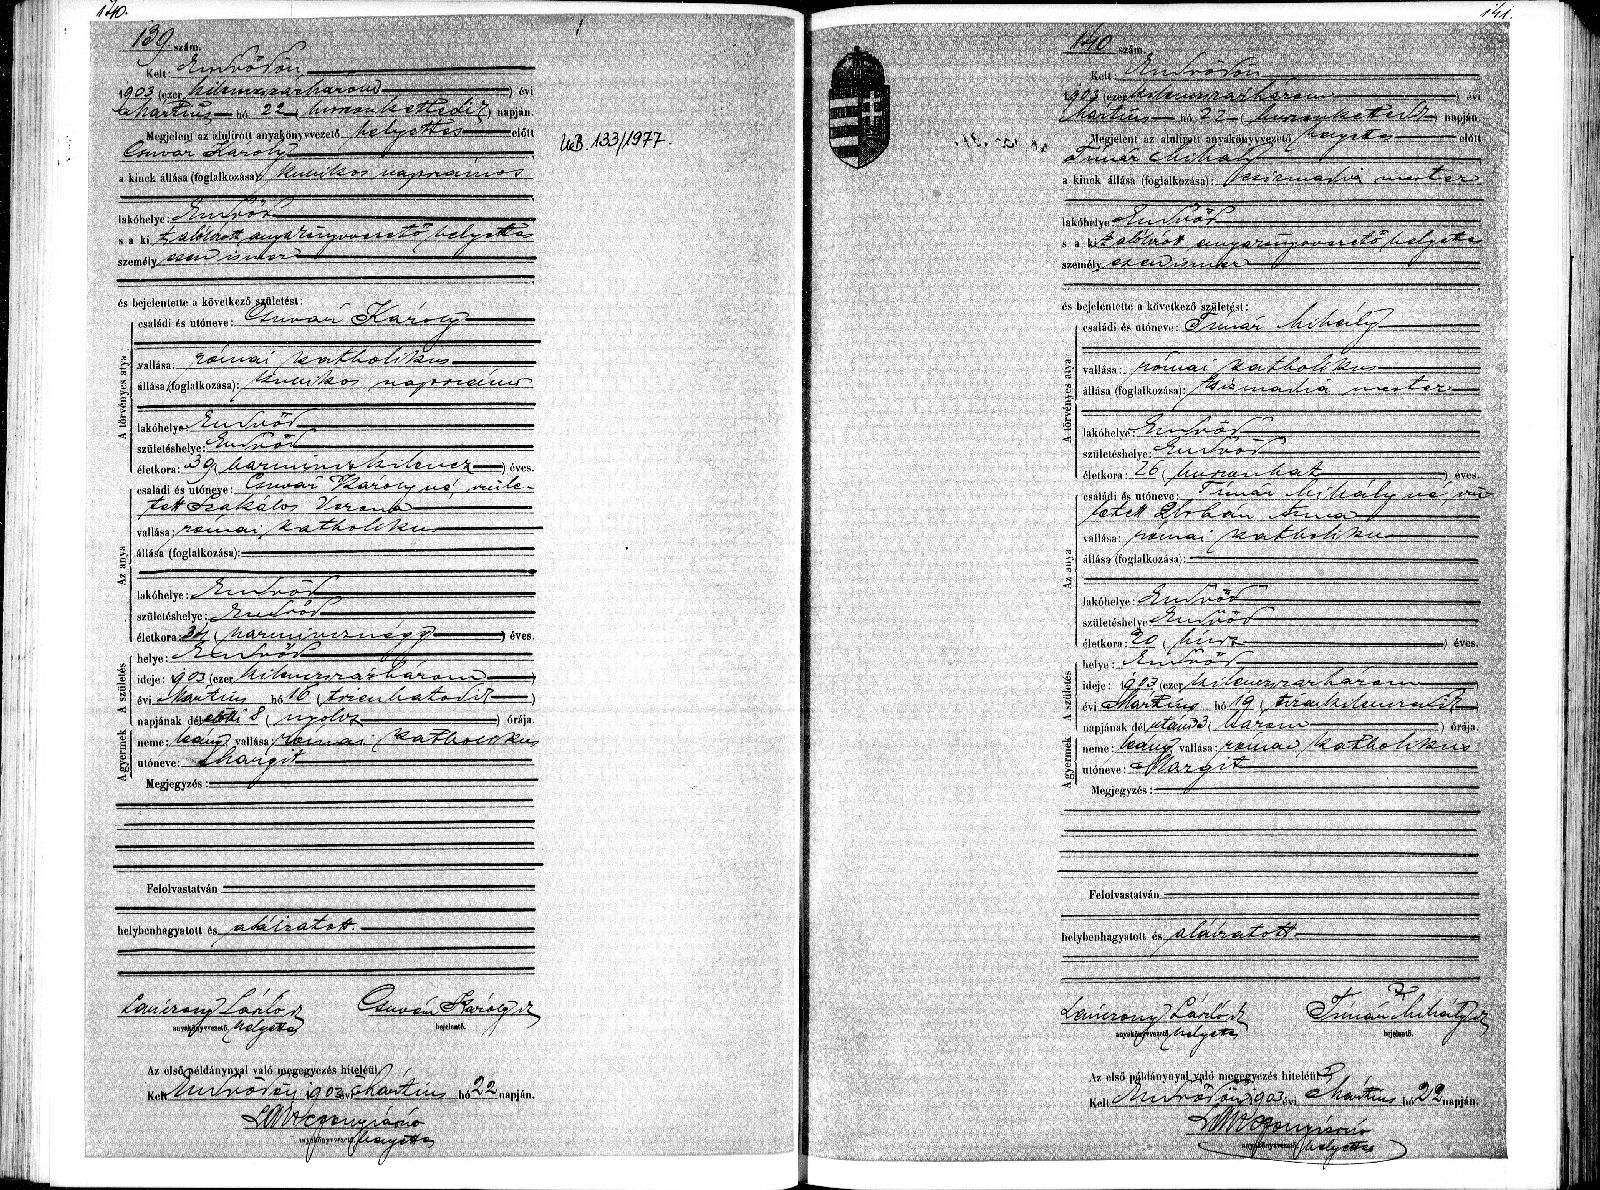 140.
139 szám.
Kelt: Endrődön,
1903 (ezer kilenczszázhárom) évi
Mártius hó 22 (huszonkettedik) napján.
Megjelent az alulirott anyakönyvvezető helyettes előtt
Csuvár Károly
a kinek állása (foglalkozása): kubikos napszámos
lakóhelye: Endrőd
s a kit alólirott anyakönyvvezető helyettes
személyesen ismer
és bejelentette a következő születést:
A törvényes atya
családi és utóneve: Csuvár Károly
vallása: római katholikus
állása (foglalkozása): kubikos napszámos
lakóhelye: Endrőd
születéshelye: Endrőd
életkora: 39 (harminczkilencz) éves.
Az anya
családi és utóneve: Csuvár Károlyné, szüle-
tett Szakálos Verona
vallása: római katholikus
állása (foglalkozása):
lakóhelye: Endrőd
születéshelye: Endrőd
életkora: 34 (harmincznégy) éves.
A gyermek A születés
helye: Endrőd
ideje: 1903 (ezer kilenczszázhárom)
évi Mártius hó 16 (tizenhatodik)
napjának délelőtti 8 (nyolcz) órája.
neme: leány vallása: római katholikus
utóneve: Margit
Megjegyzés:
Felolvastatván
helybenhagyatott és aláiratott.
László
Csuvár Károly
anyakönyvvezető helyettes
bejelentő.
Az első példánynyal való megegyezés hiteléül
Kelt Endrődön 1903 évi Mártius hó 22 napján.
anyakönyvvezető helyettes
UeB. 133/1977.
141.
140 szám.
Kelt: Endrődön
1903 (ezer kilenczszázhárom) évi
Mártius hó 22 (huszonkettedik) napján.
Megjelent az alulirott anyakönyvvezető helyettes előtt
Timár Mihály
a kinek állása (foglalkozása): csizmadia mester
lakóhelye: Endrőd
s a kit alólirott anyakönyvvezető helyettes
személyesen ismer
és bejelentette a következő születést:
A törvényes atya
családi és utóneve: Timár Mihály
vallása: római katholikus
állása (foglalkozása): csizmadia mester
lakóhelye: Endrőd
születéshelye: Endrőd
életkora: 26 (huszonhat) éves.
Az anya
családi és utóneve: Timár Mihályné, szü
letett Anna
vallása: római katholikus
állása (foglalkozása):
lakóhelye: Endrőd
születéshelye: Endrőd
életkora: 20 (húsz) éves.
A gyermek A születés
helye: Endrőd
ideje: 1903 (ezer kilenczszázhárom)
évi Mártius hó 19 (tizenkilenczedik)
napjának délutáni 3 (három) órája.
neme: leány vallása: római katholikus
utóneve: Margit
Megjegyzés:
Felolvastatván
helybenhagyatott és aláiratott
László
Timár Mihály
anyakönyvvezető helyettes
bejelentő.
Az első példánynyal való megegyezés hiteléül
Kelt Endrődön 1903 évi Mártius hó 22 napján.
anyakönyvvezető helyettes